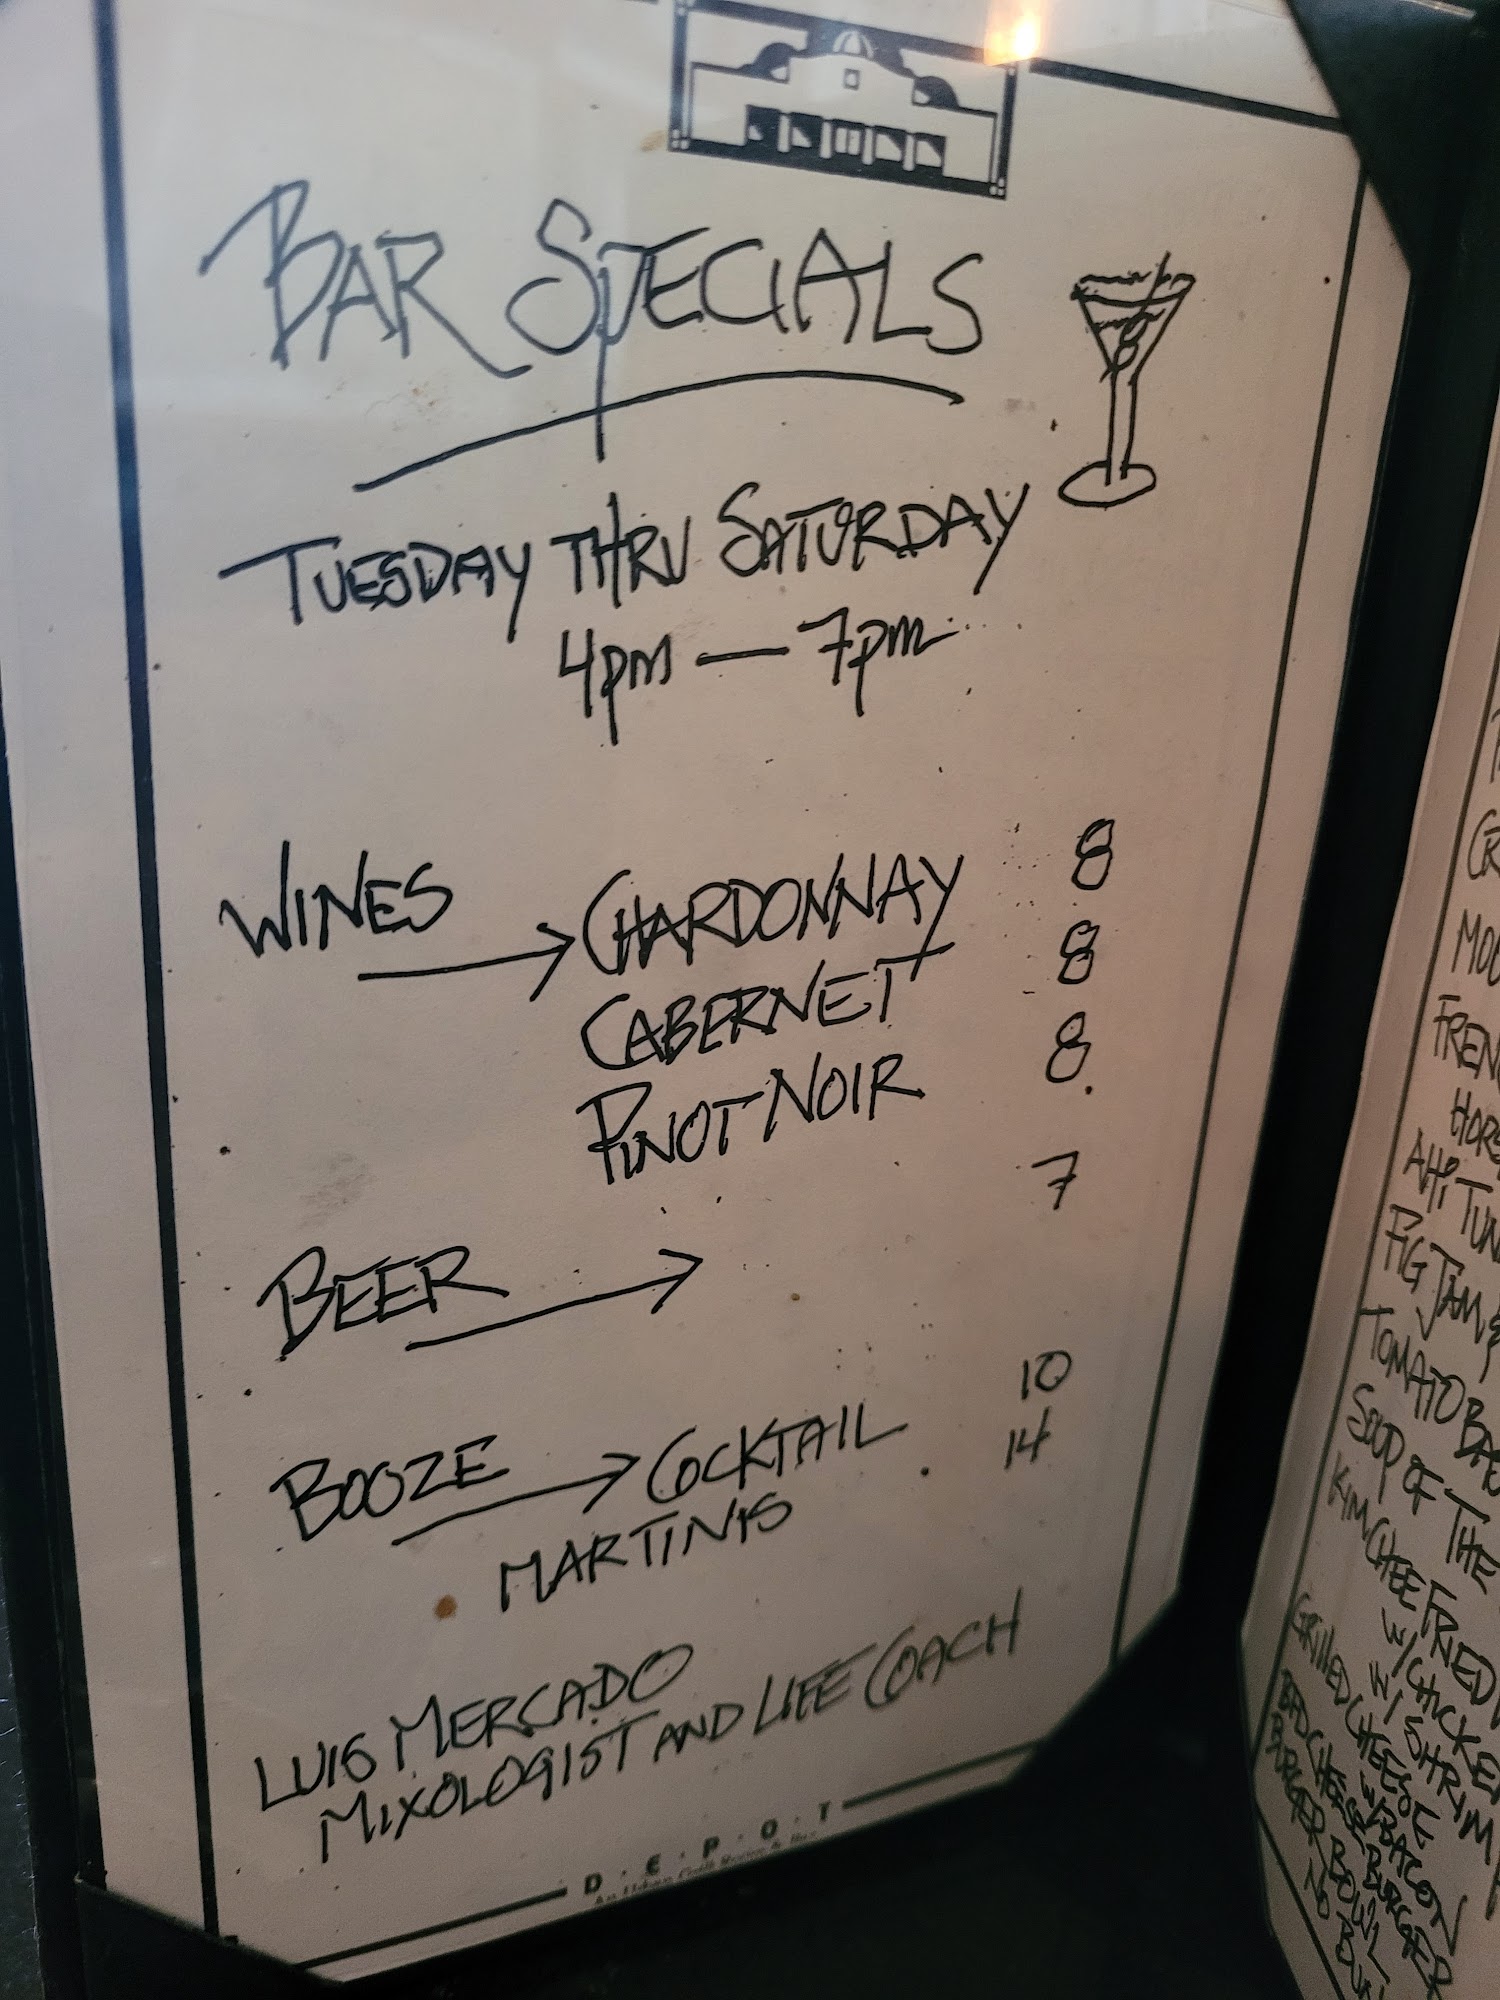 BAR SPECIALS
TUESDAY THRU SATURDAY
4pm — 7pm
WINES → CHARDONNAY 8
CABERNET 8
PINOT NOIR 8
BEER → 7
BOOZE → COCKTAIL 10
MARTINIS 14
LUIS MERCADO
MIXOLOGIST AND LIFE COACH
D·E·P·O·T
FREN
HORS
AHI TUN
FIG JAM &
TOMATO BA
SOUP OF THE
KIMCHEE FRIED
W/ CHICKEN
W/ SHRIM
GRILLED CHEESE
W/ BACON
CHEESE BURGER
BURGER BOWL
NO BUN